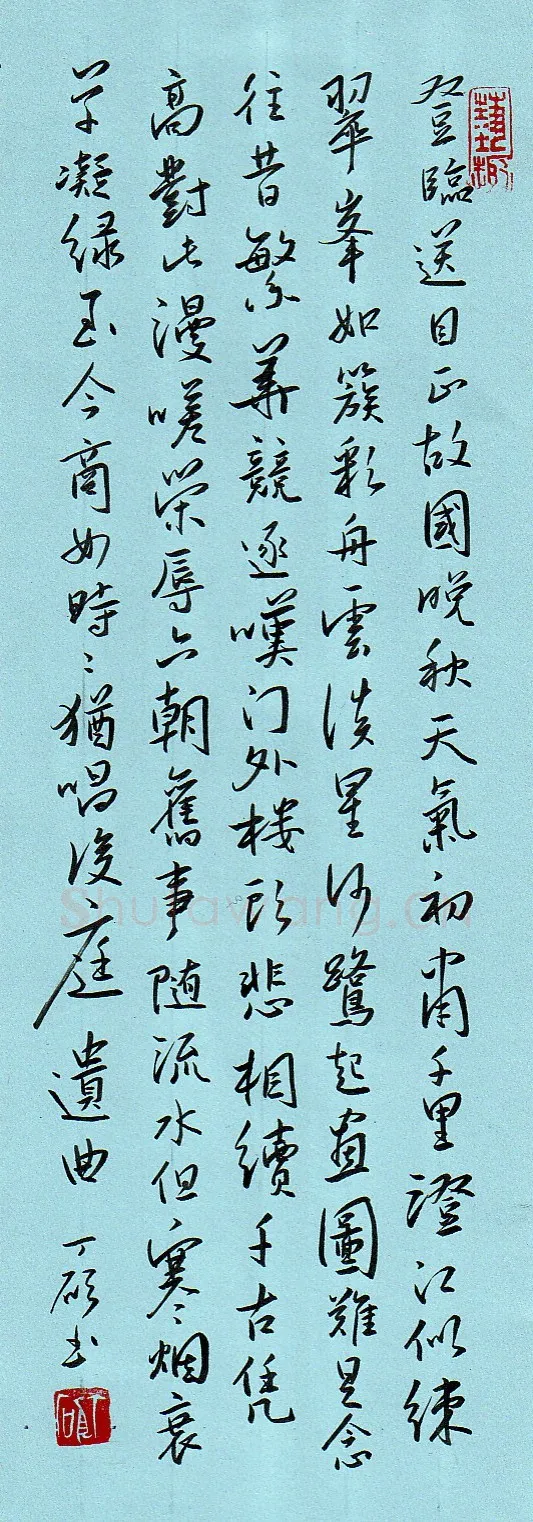 登臨送目正故國晚秋天氣初肅千里澄江似練
翠峯如簇彩舟雲淡星河鷺起畫圖難足念
往昔繁華競逐嘆门外楼頭悲相續千古凭
高對此漫嗟榮辱六朝舊事随流水但寒烟衰
草凝緑至今商女時〻猶唱後庭遺曲 丁硕书
Shufawang.cn